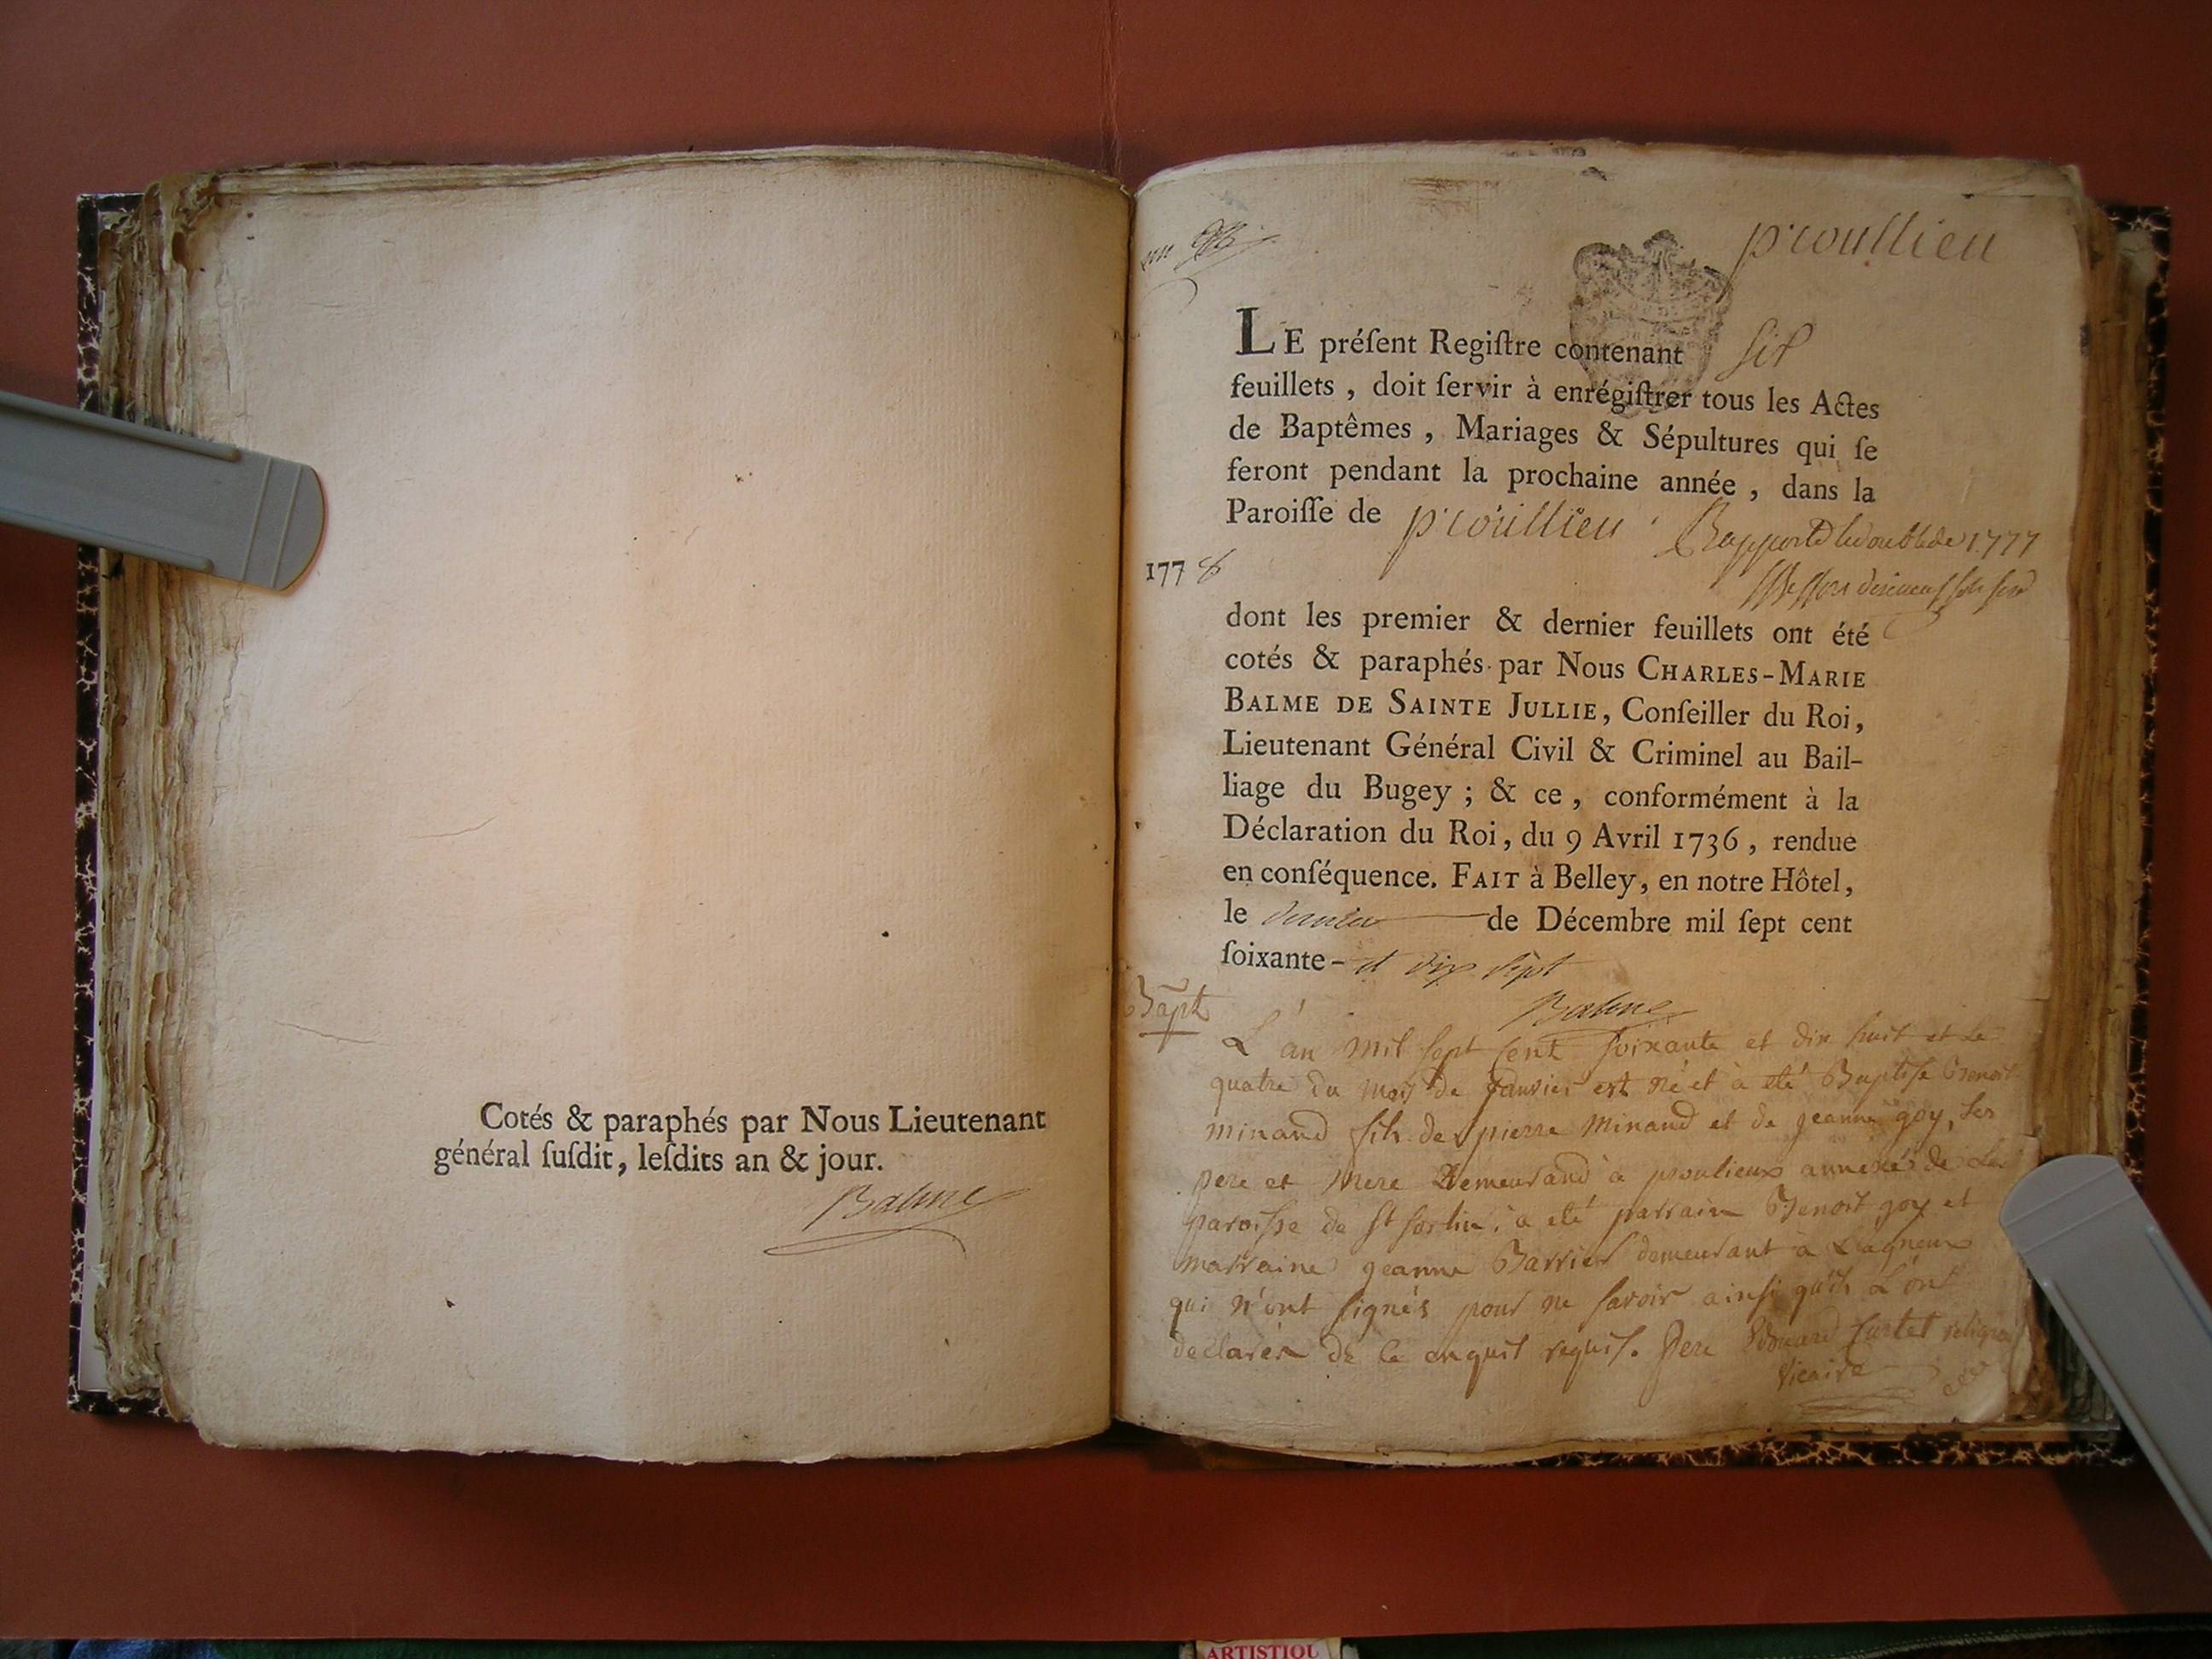 Cotés & paraphés par Nous Lieutenant
général ſuſdit, leſdits an & jour.
Balme
un
proullieu
LE préſent Regiſtre contenant six
feuillets, doit ſervir à enrégiſtrer tous les Actes
de Baptêmes, Mariages & Sépultures qui ſe
feront pendant la prochaine année, dans la
Paroiſſe de proullieu
1777
1778
dont les premier & dernier feuillets ont été
cotés & paraphés par Nous CHARLES-MARIE
BALME DE SAINTE JULLIE, Conſeiller du Roi,
Lieutenant Général Civil & Criminel au Bail-
liage du Bugey; & ce, conformément à la
Déclaration du Roi, du 9 Avril 1736, rendue
en conſéquence. FAIT à Belley, en notre Hôtel,
le dernier de Décembre mil ſept cent
ſoixante- et dix sept
Balme
Bapt
L'an mil sept cent soixante et dix huit et le
quatre du mois de janvier est né et à eté Baptise Benoit
minand fils de pierre minand et de jeanne goy, ses
pere et mere Demeurand à proulieux annexé de la
paroisse de st sorlin; a eté parrain Benoit goy et
marraine jeanne Barrier demeurant à Lagneux
qui n'ont signés pour ne savoir ainsi qu'ils L'ont
declarés de ce enquis requis. pere Edouard Curtet religieux
Vicaire
ARTISTIQU